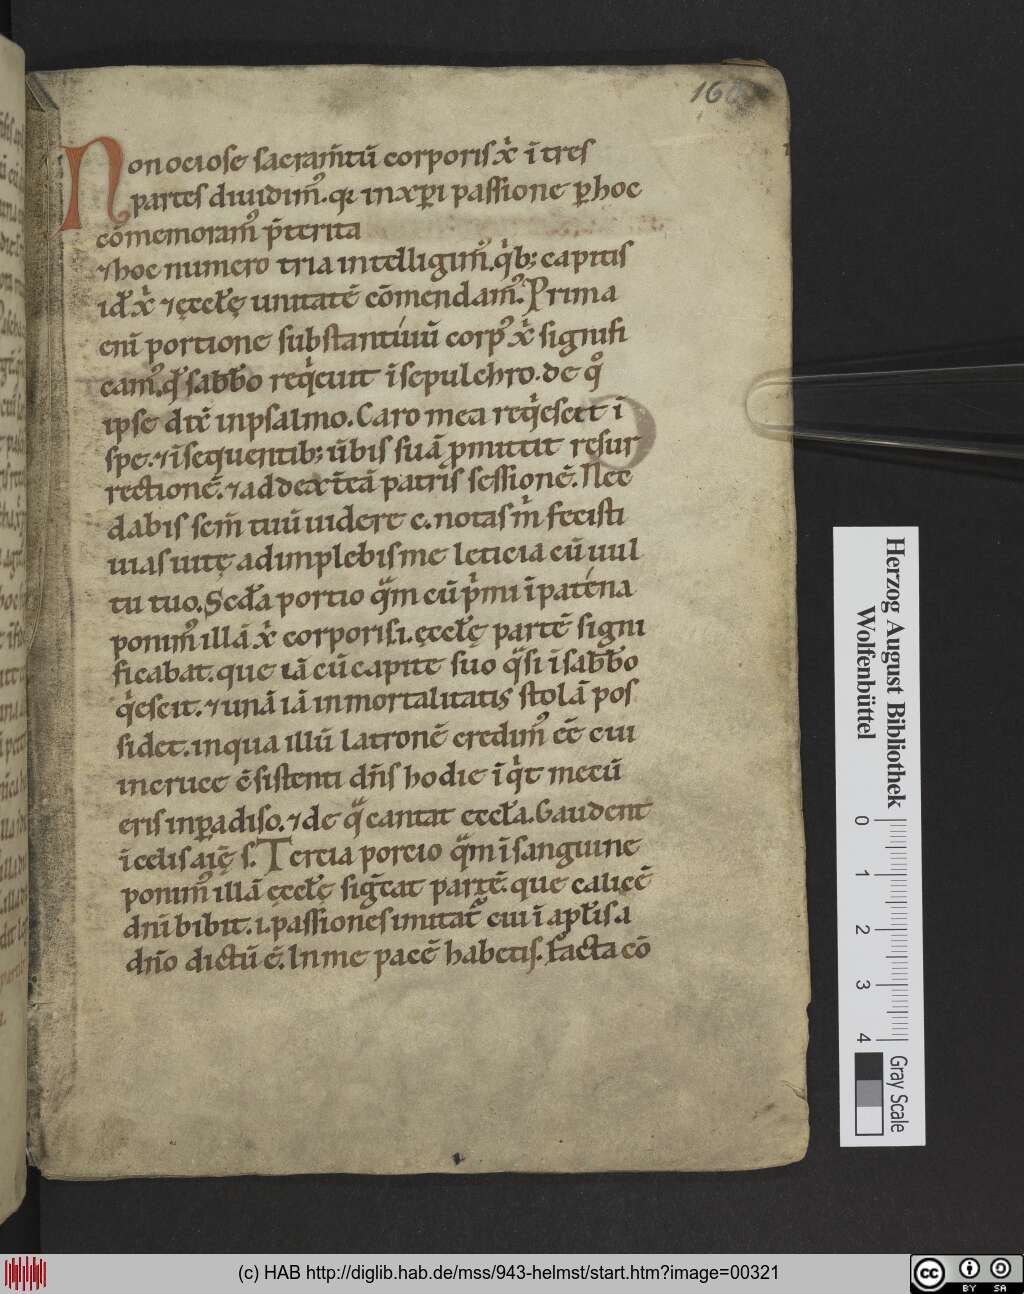 160
Non ociose sacram̄tū corporis x̓ ī tres
partes diuidim᷒. qꝛ in xp̄i passione ꝑ hoc
cōmemoram᷒ p̄terita
⁊ hoc numero tria intelligim᷒. q̓b; capitis
id ē x̓ ⁊ ęcclę unitatē cōmendam᷒. Prima
enī portione substantiuū corp᷒ x̓ signifi
cam᷒. qđ sabbo req̓euit ī sepulchro. de qͦ
ipse dix̄ in psalmo. Caro mea req̓escet ī
spe. ⁊ ī sequentib; ūbis suā ꝓmittit resur
rectionē. ⁊ ad dext̄eā patris sessionē. Nec
dabis sc̄m tuū uidere c. notas m̓ fecisti
uias uitę adimplebis me leticia cū uul
tu tuo. Seda portio qᷓm cū p̓mi ī patena
ponim᷒ illā x̓ corporis .i. ęcclę partē signi
ficabat. que iā cū capite suo qᷓsi ī sabbo
q̓escit. ⁊ unā iā inmortalitatis stolā pos
sidet. in qua illū latronē credim᷒ ee͞ cui
in cruce c̄sistenti dn̄s hodie īq̓t mecū
eris in ꝑadiso. ⁊ de qᷓ cantat eccła. Gaudent
ī celis aīę s. Tercia porcio qᷓm ī sanguine
ponim᷒ illā ęcclę sig̅cat partē. que calicē
dnī bibit .i. passiones imitat᷑ cui ī apl̄is a
dn̄o dictū ē. In me pacē habetis. Facta cō
Herzog August Bibliothek
Wolfenbüttel
0 1 2 3 4
Gray Scale
(c) HAB http://diglib.hab.de/mss/943-helmst/start.htm?image=00321
cc BY SA